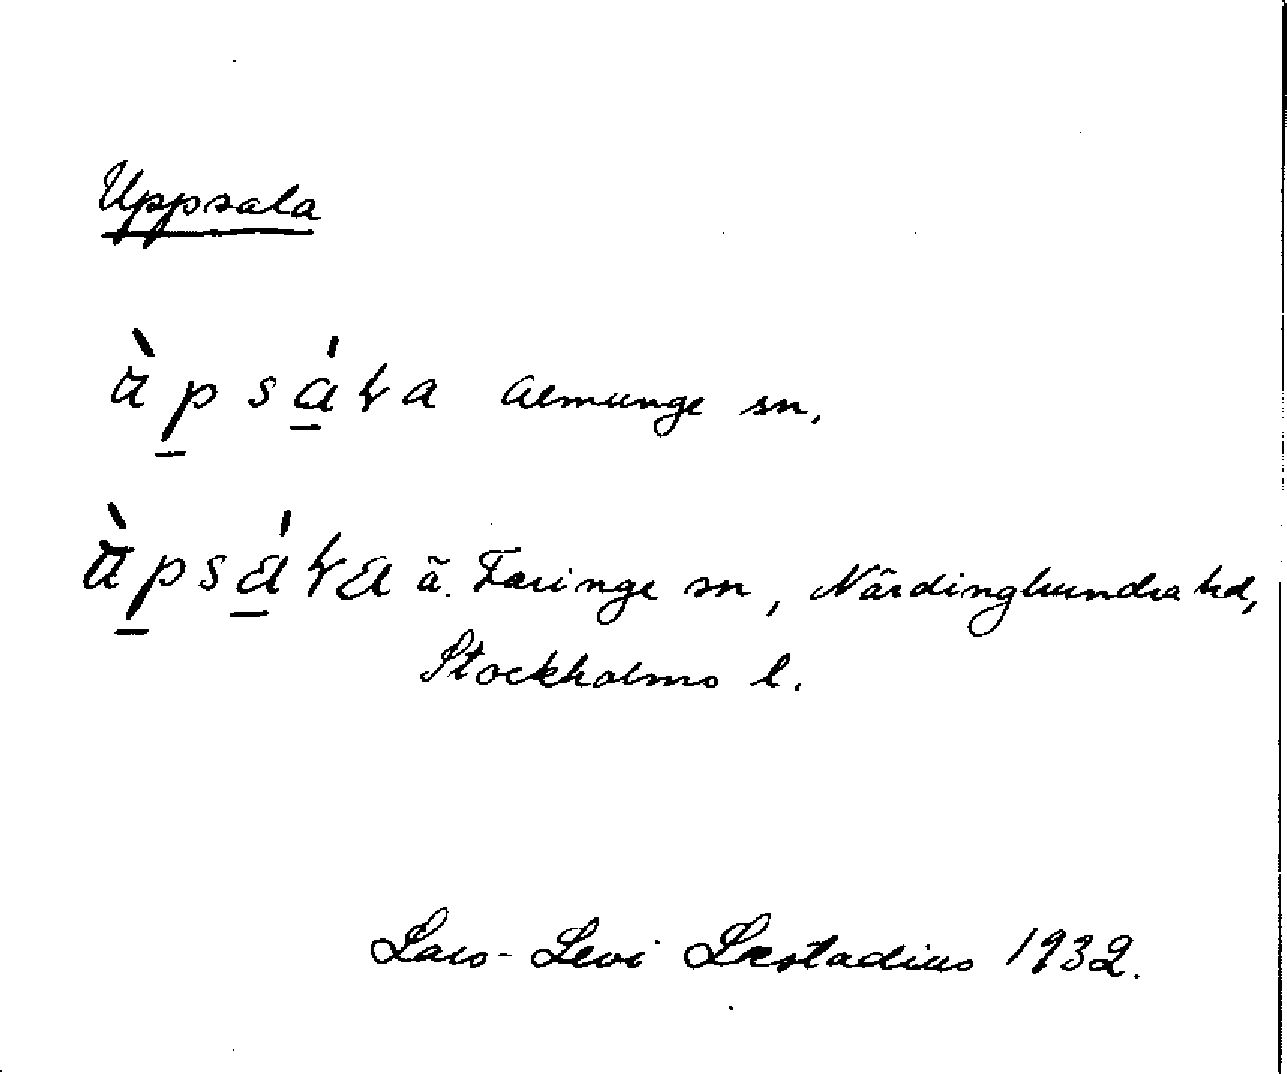 Uppsala
Almunge sn,
ä. Faringe sn, Närdinghundra hd,
Stockholms l.
Lars-Levi Læstadius 1932.